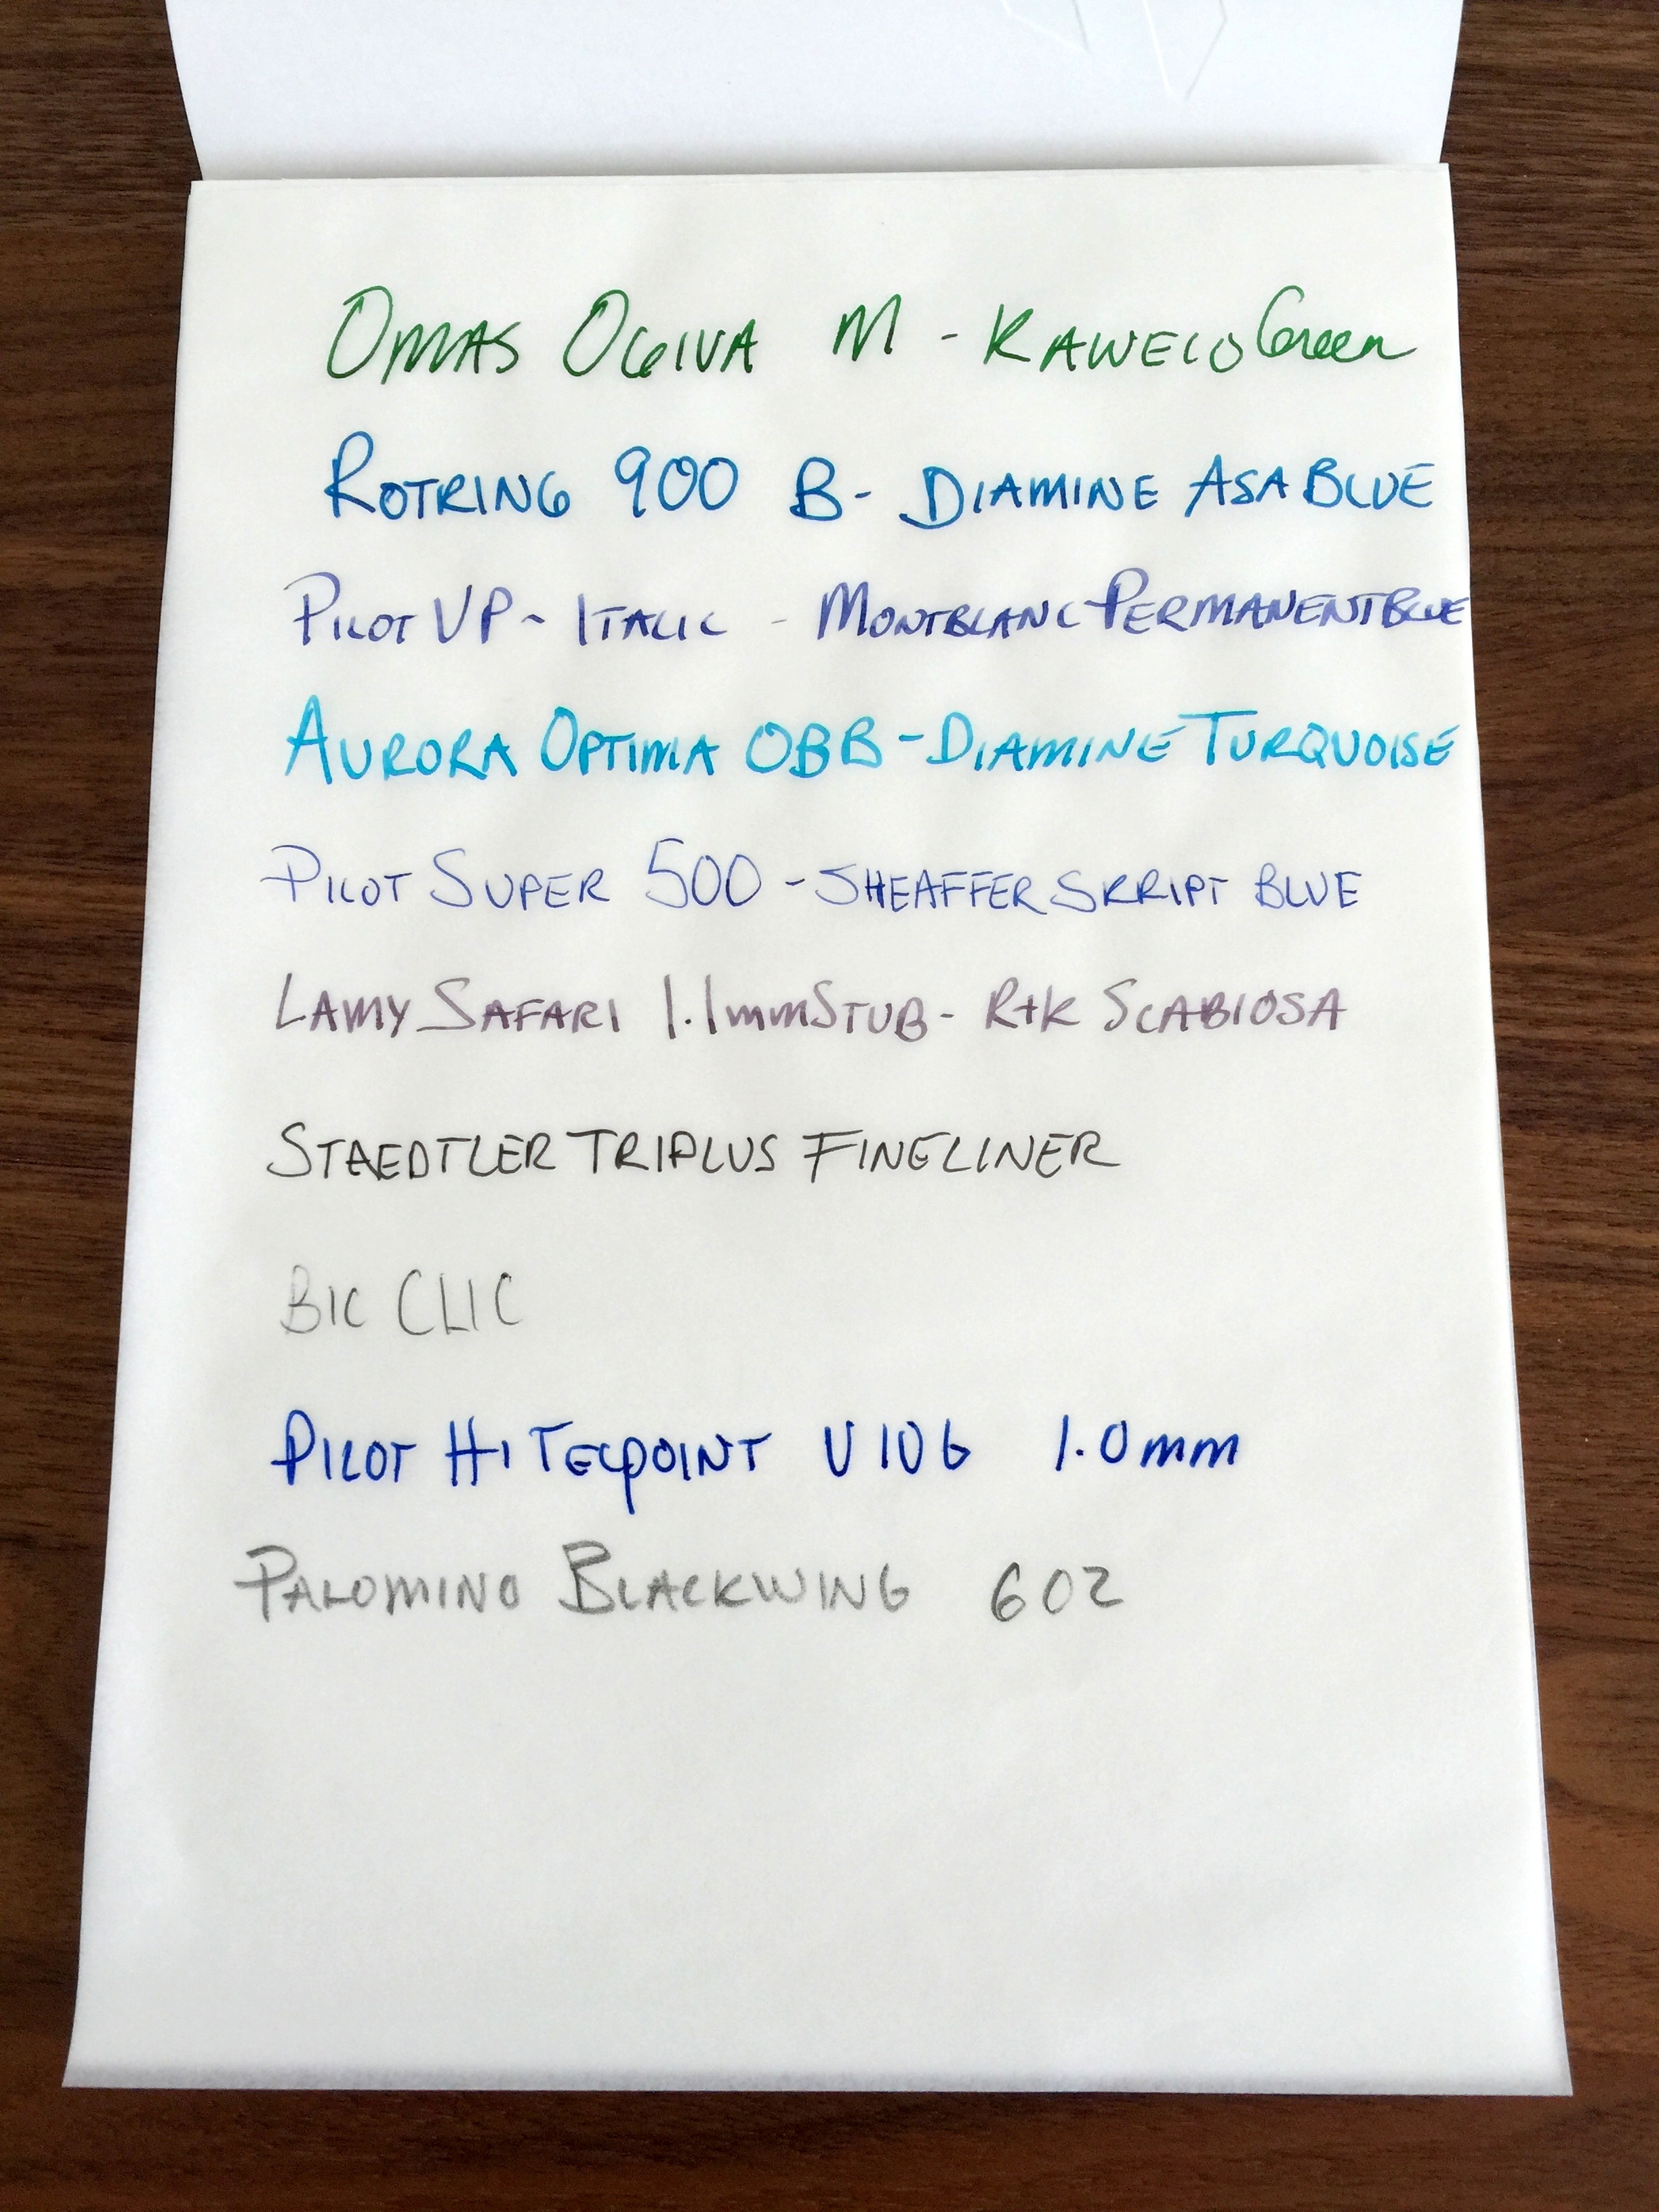 OMAS OGIVA M - KAWECO Green
ROTRING 900 B- DIAMINE ASA BLUE
PILOT VP - ITALIC - MONTBLANC PERMANENT BLUE
AURORA OPTIMA OBB - DIAMINE TURQUOISE
PILOT SUPER 500 - SHEAFFER SKRIPT BLUE
LAMY SAFARI 1.1mm STUB - R+K SCABIOSA
STAEDTLER TRIPLUS FINELINER
BIC CLIC
PILOT HI TECPOINT V10G 1.0mm
PALOMINO BLACKWING 602